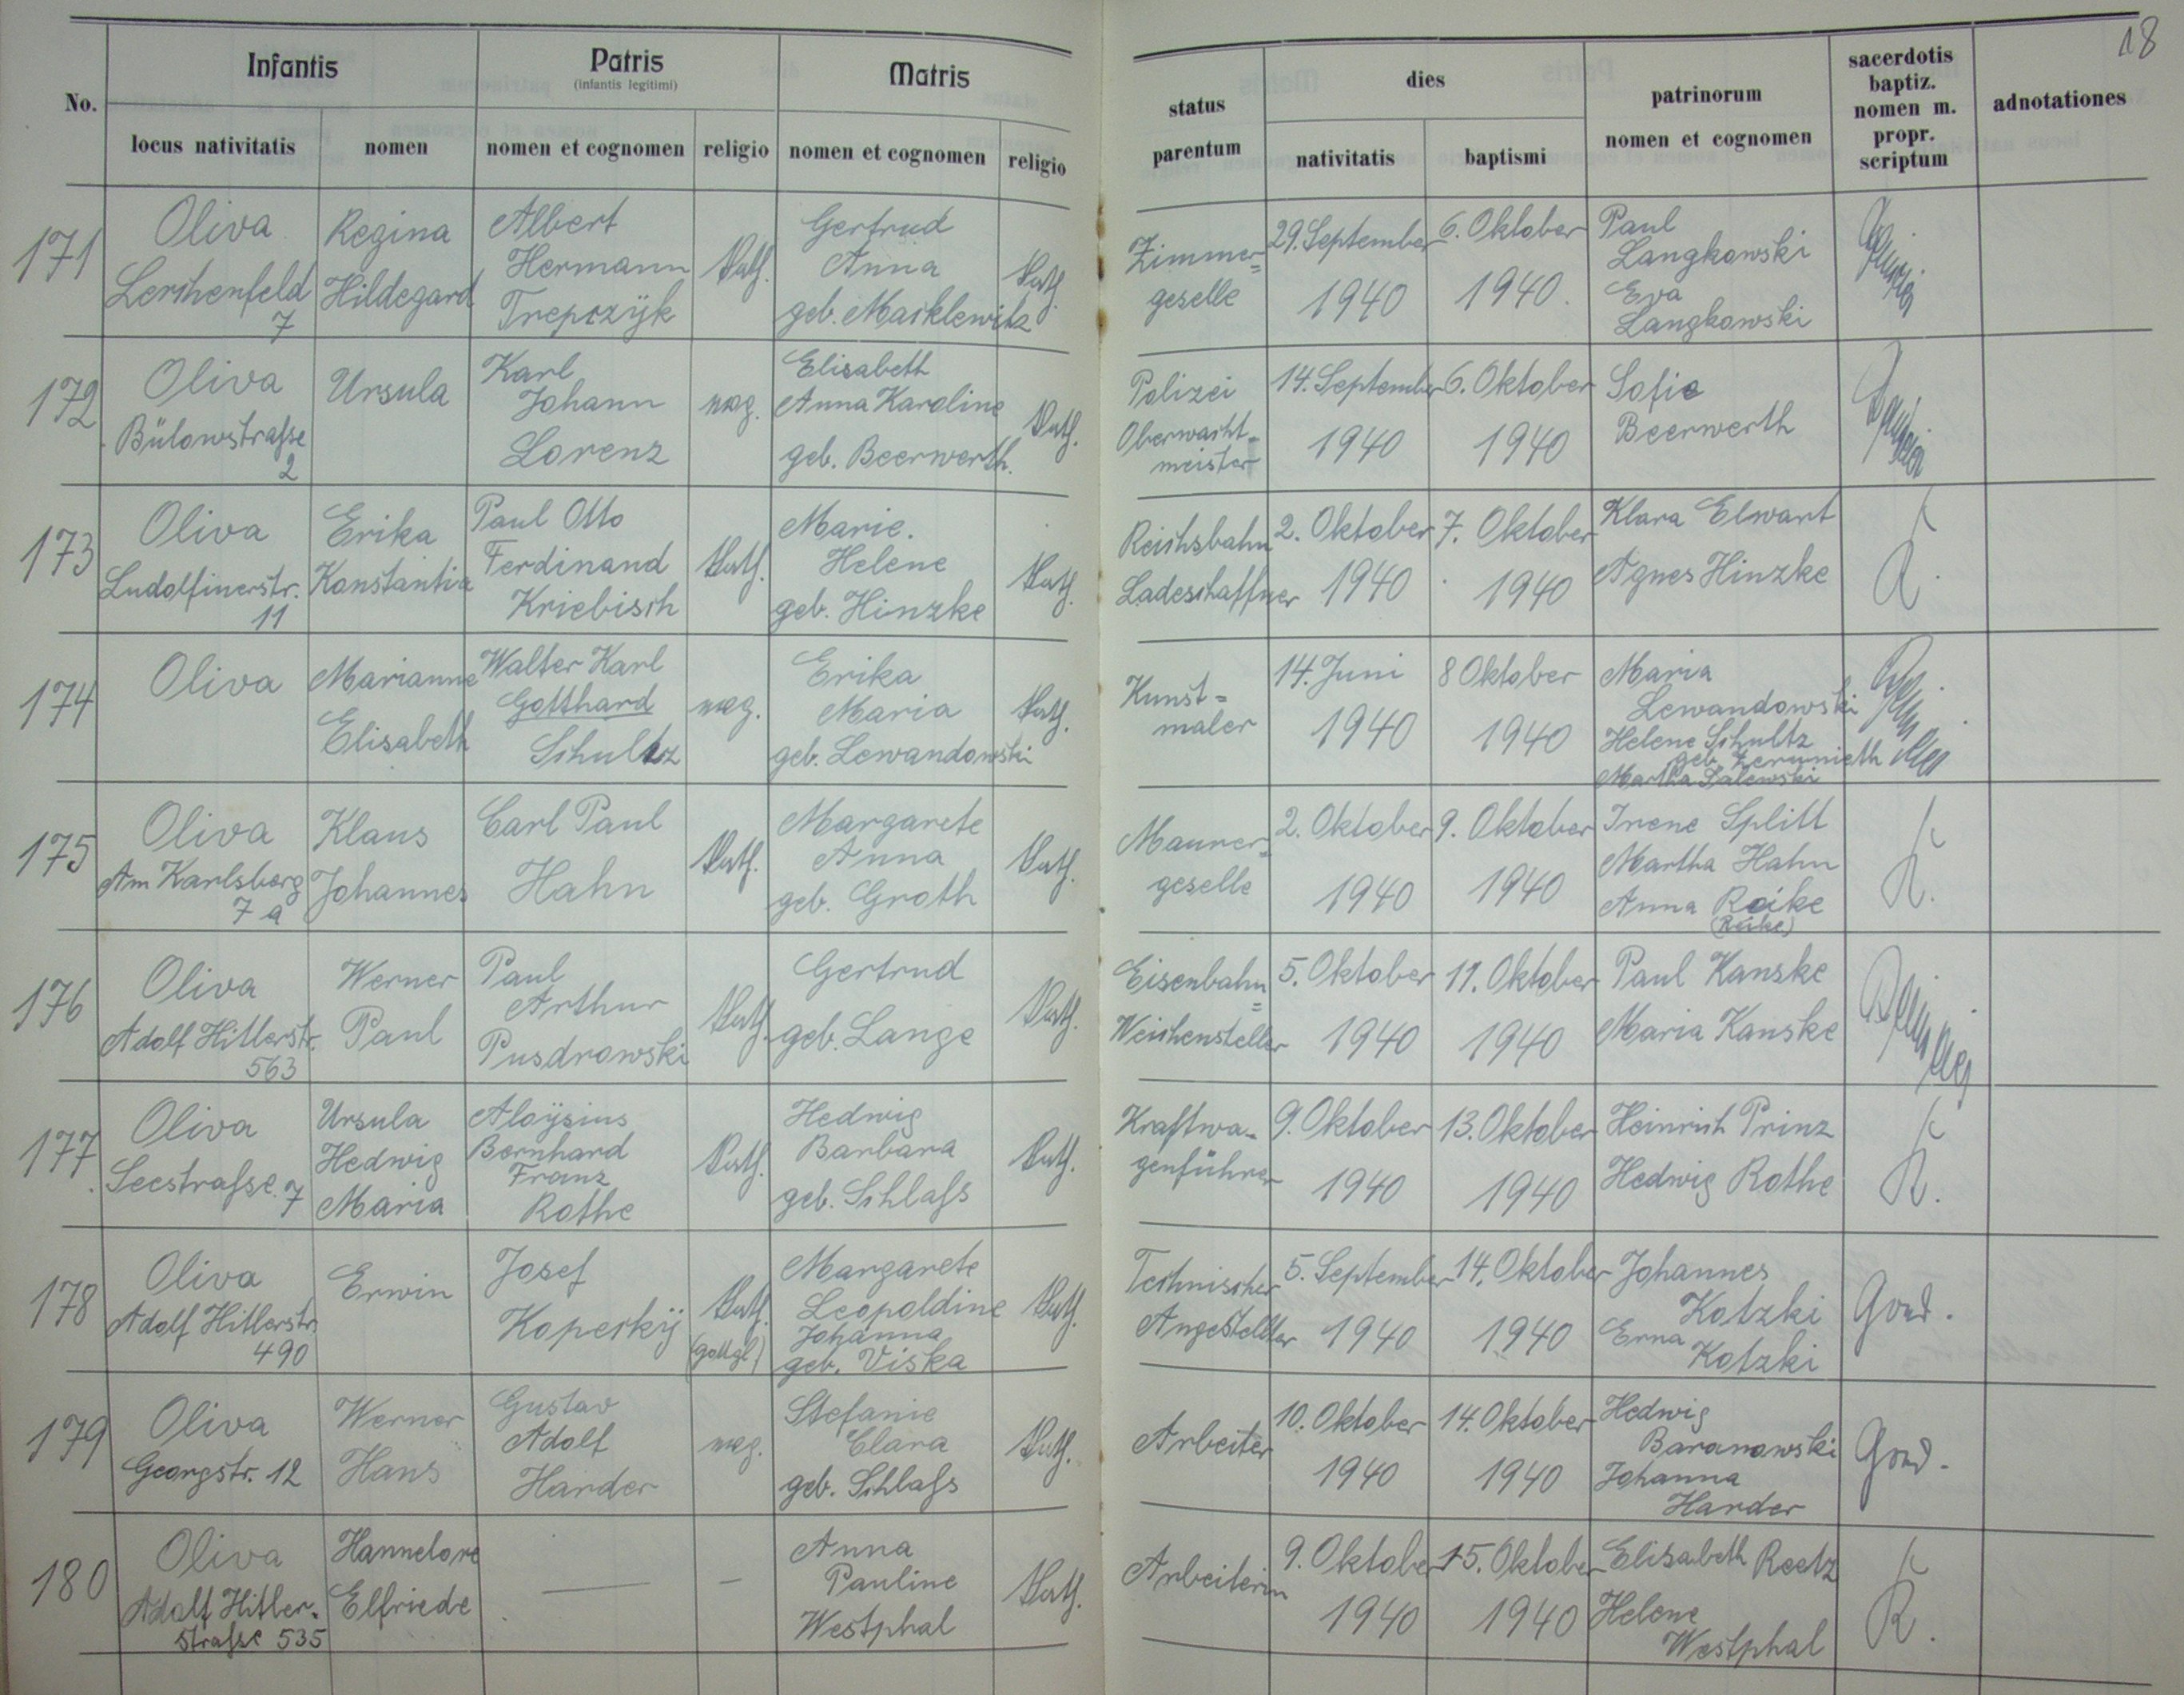 18
No.
Infantis
Patris
(infantis legitimi)
Matris
status parentum
dies
patrinorum
nomen et cognomen
sacerdotis
baptiz.
nomen m.
propr.
scriptum
adnotationes
locus nativitatis
nomen
nomen et cognomen
religio
nomen et cognomen
religio
nativitatis
baptismi
171
Oliva
Lerchenfeld
7
Regina
Hildegard
Albert
Hermann
Trepczÿk
kath.
Gertrud
Anna
geb. Marklewitz
kath.
Zimmer=
geselle
29. September
1940
6. Oktober
1940.
Paul
Langkowski
Eva
Langkowski
172
Oliva
Bülowstraſse
2
Ursula
Karl
Johann
Lorenz
evg.
Elisabeth
Anna Karoline
geb. Beerwerth.
kath.
Polizei
Oberwacht-
meister
14. September
1940
6. Oktober
1940
Sofie
Beerwerth
173
Oliva
Ludolfinerstr.
11
Erika
Konstantia
Paul Otto
Ferdinand
Kriebisch
kath.
Marie.
Helene
geb. Hinzke
kath.
Reichsbahn
Ladeschaffner
2. Oktober
1940
7. Oktober
1940
Klara Elwart
Agnes Hinzke
174
Oliva
Marianne
Elisabeth
Walter Karl
Gotthard
Schultz
evg.
Erika
Maria
geb. Lewandowski
kath.
Kunst=
maler
14. Juni
1940
8 Oktober
1940
Maria
Lewandowski
Helene Schultz
geb.
Martha Salewski
175
Oliva
Am Karlsberg
7 a
Klaus
Johannes
Carl Paul
Hahn
kath.
Margarete
Anna
geb. Groth
kath.
Maurer=
geselle
2. Oktober
1940
9. Oktober
1940
Irene Splitt
Martha Hahn
Anna Reike
(Reike)
K.
176
Oliva
Adolf Hitlerstr.
563
Werner
Paul
Paul
Arthur
Pusdrowski
kath.
Gertrud
geb. Lange
kath.
Eisenbahn=
Weichensteller
5. Oktober
1940
11. Oktober
1940
Paul Kanske
Maria Kanske
177
Oliva
Seestraſse. 7
Ursula
Hedwig
Maria
Aloÿsius
Bernhard
Franz
Rothe
kath.
Hedwig
Barbara
geb. Schlaſs
kath.
Kraftwa-
genführer
9. Oktober
1940
13. Oktober
1940
Heinrich Prinz
Hedwig Rothe
K.
178
Oliva
Adolf Hitlerstr.
490
Erwin
Josef
Koperskÿ
kath.
(gottgl)
Margarete
Leopoldine
Johanna
geb. Viska
kath.
Technischer
Angestellter
5. September
1940
14. Oktober
1940
Johannes
Kotzki
Erna
Kotzki
179
Oliva
Georgstr. 12
Werner
Hans
Gustav
Adolf
Harder
evg.
Stefanie
Clara
geb. Schlaſs
kath.
Arbeiter
10. Oktober
1940
14. Oktober
1940
Hedwig
Baranowski
Johanna
Harder
180
Oliva
Adolf Hitler-
straſse 535
Hannelore
Elfriede
—
—
Anna
Pauline
Westphal
kath.
Arbeiterin
9. Oktober
1940
15. Oktober
1940
Elisabeth Reetz
Helene
Westphal
K.